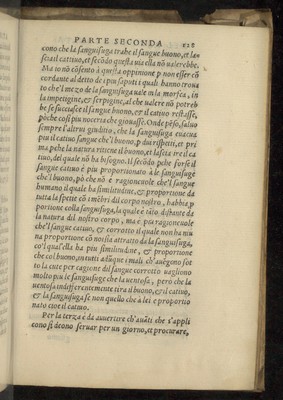 PARTE SECONDA
cono che la sanguisuga trahe il sangue buono, et las
scia il cattiuo, et secōdo questa uia ella nō ualerebbe.
Ma io nō cōsento à questa oppinione p non esser cō
cordante al detto de i piu saputi i quali hanno troua
to che l'uso de la sanguisuga uale in la morfea, in
la impetigine, & serpigine, al che ualere nō potreb
be se succiasse il sangue buono, & il cattiuo restasse,
pò che cosi piu noceria che giouasse. Onde pēso, saluo
sempre l'altrui giuditio, che la sanguisuga euacua
piu il catiuo sangue che'l buono, p dui rispetti, et pri
ma pche la natura ritiene il buono, et lascia ire il ca
tiuo, del quale nō ha bisogno. Il secōdo pche forse il
sangue catiuo è piu proportionato à le sanguisuge
che'l buono, pò che nō è ragioneuole che'l sangue
humano il quale ha similitudine, & proportione da
tutta la spetie cō i mēbri dal corpo nostro, habbia p
portione colla sanguisuga, la quale è tāto distante da
la natura del nostro corpo, ma è piu ragioneuole
che'l sangue catiuo, & corrotto il quale non ha niu
na proportione cō noi sia attratto da la sanguisuga,
co'l qual ella ha piu similitudine, & proportione
che co'l buono, in tutti adūque i mali ch'auēgono sot
to la cute per cagione dil sangue corretto uagliono
molto piu le sanguisuge che la uentosa, pero che la
uentosa indifferentemente tira il buono, & il catiuo,
& la sanguisuga se non quello che à lei è proportio
nato cioè il catiuo.
Per la terza è da auuertire ch'auāti che s'appli
cono si deono seruar per un giorno, et procurare,